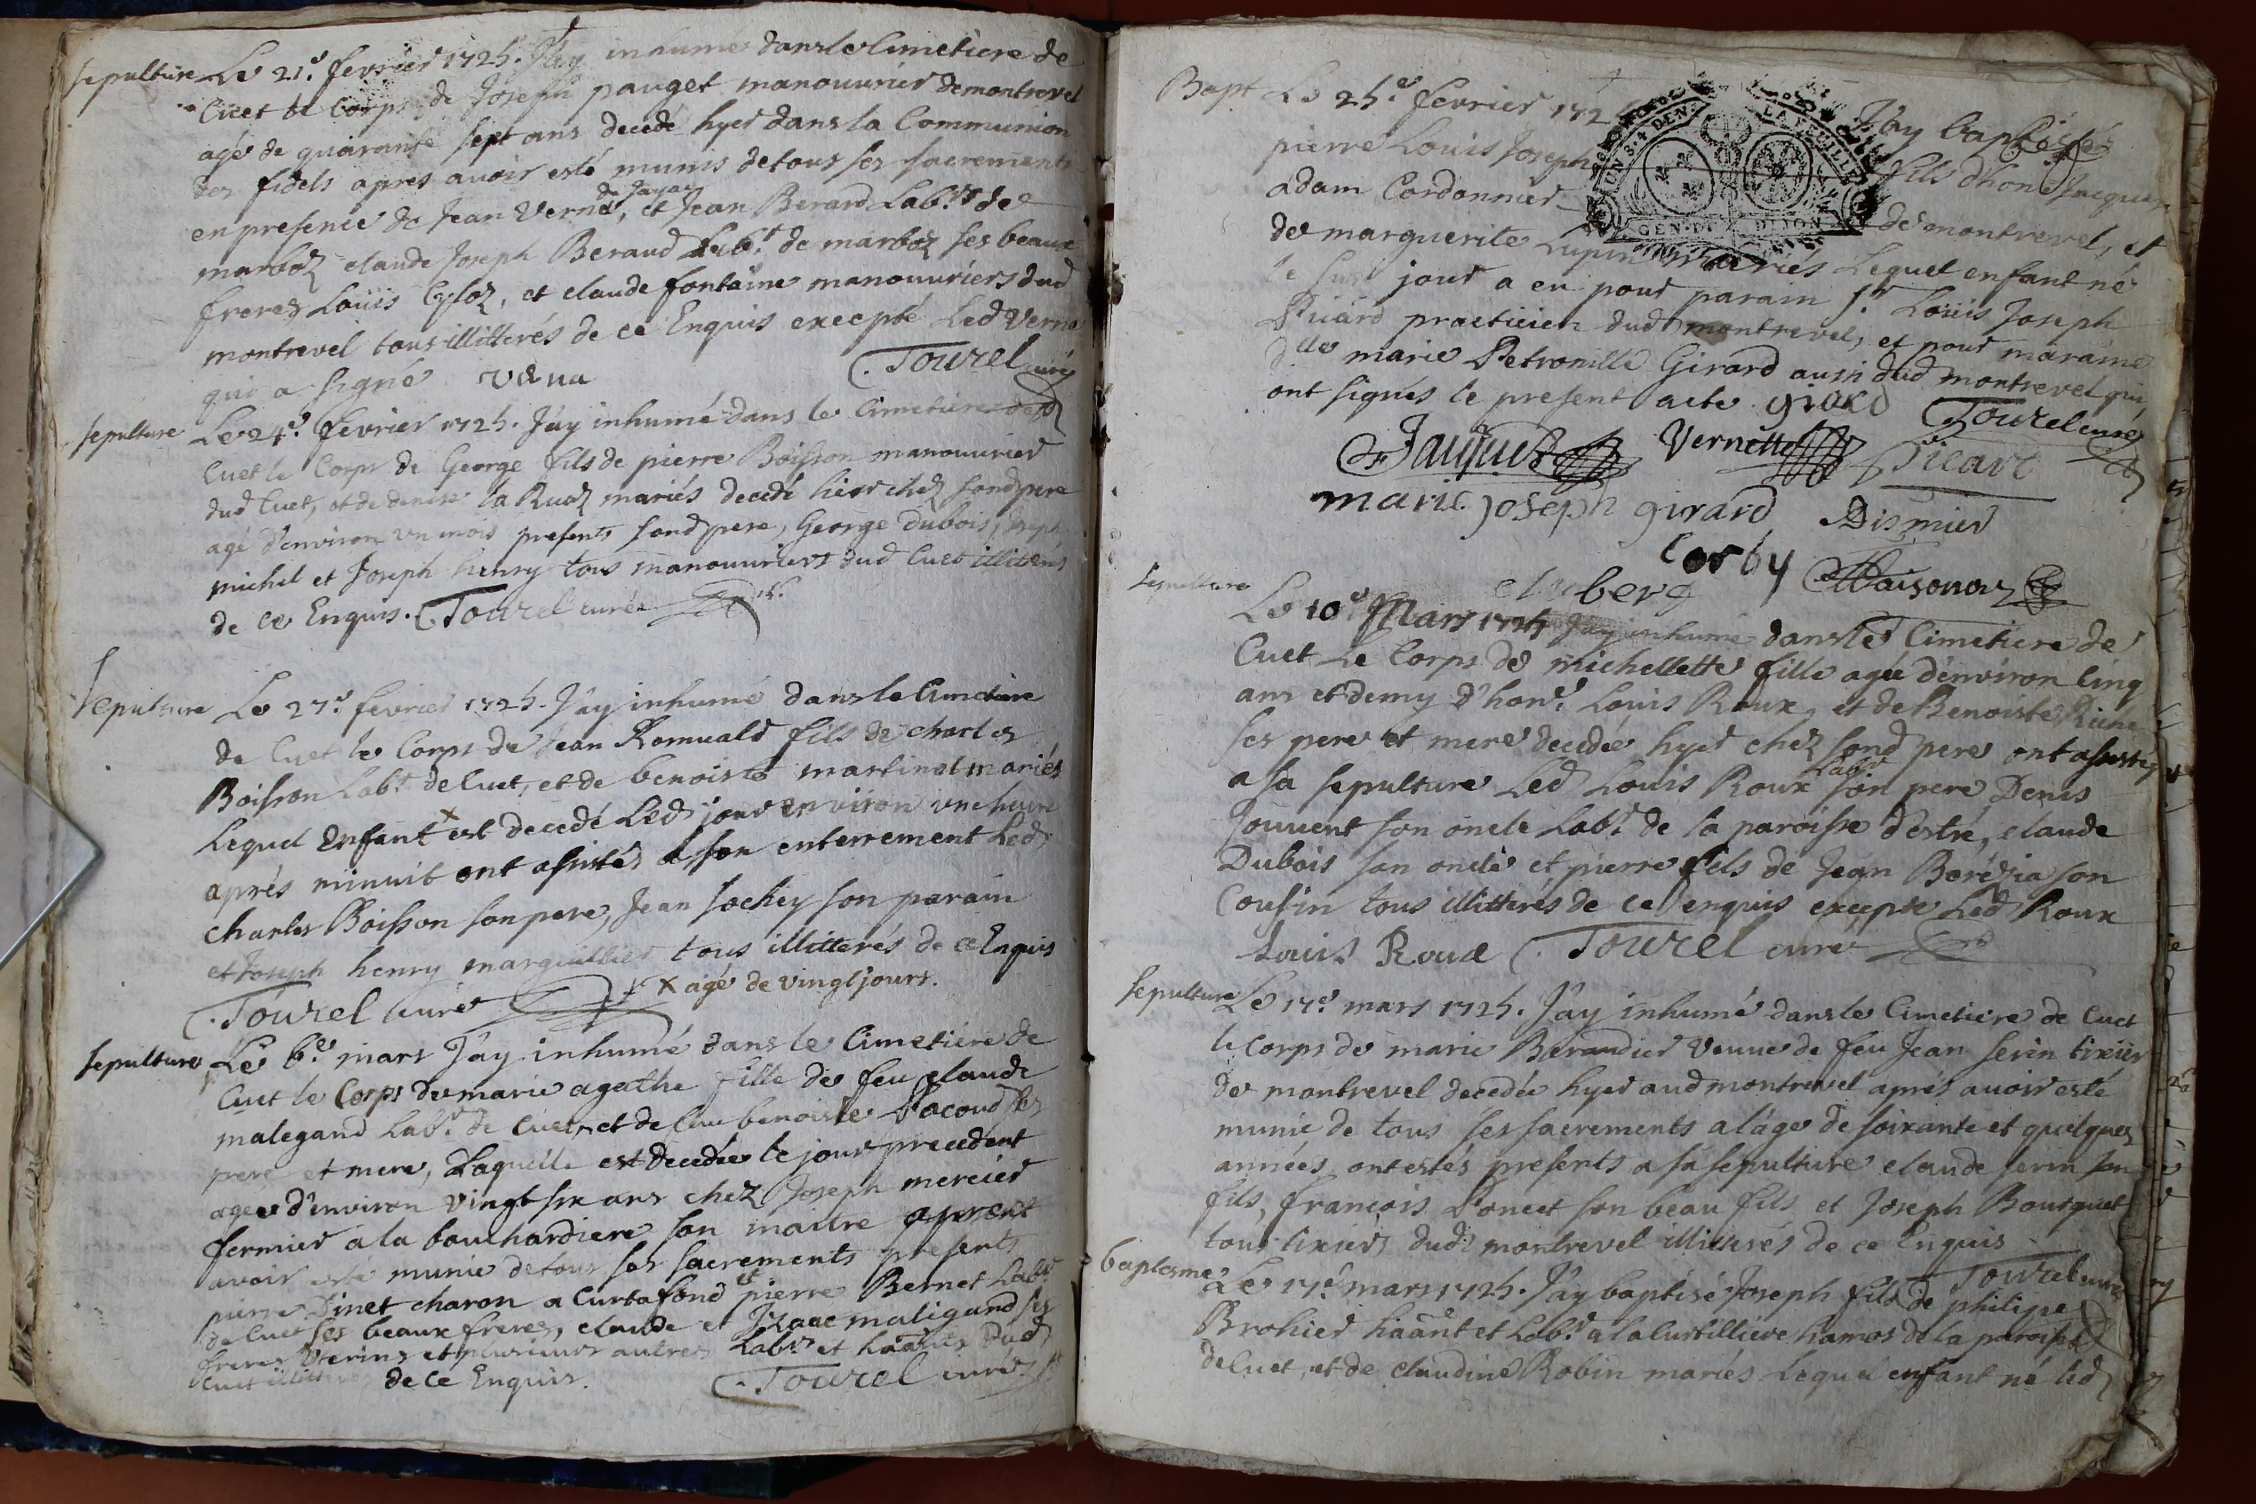 sepulture Le 21e. fevrier 1725. J'ay inhumé dans le Cimetiere de
Cuet le Corps de Joseph pauget manouvrier de montrevel
agé de quarante sept ans decedé hyer dans la Communion
des fidels apres avoir esté munis de tous ses sacrements
en presence de Jean Verna, de Jayat et Jean Berard Labrs de
marboz claude Joseph Beraud Labr. de marboz ses beaux
freres Loüis Cyloz, et claude fontaine manouvriers dud
montrevel tous illitterés de ce Enquis excepté Led Verna
qui a signé verna Tourel curé
sepulture Le 24e. fevrier 1725. J'ay inhumé dans le Cimetiere de
Cuet le Corps de George fils de pierre Boisson manouvrier
dud Cuet, et de denise la Ruaz mariés decedé hier chez sond pere
agé d'environ un mois presents sond pere, George Dubois,
michel et Joseph henry tous manouvriers dud Cuet illiterés
de ce Enquis. Tourel curé
Sepulture Le 27e. fevrier 1725. J'ay inhumé dans le Cimetiere
de Cuet le Corps de Jean Romuald fils de charles
Boisson Labr. de Cuet, et de benoiste martinet mariés
Lequel Enfant x est decedé Led jour environ une heure
aprés minuit ont assistés a son enterrement Led
charles Boisson son pere, Jean sochey son parain
et Joseph henry marguillier tous illitterés de ce Enquis
Tourel curé x agé de vingt jours.
sepulture Le 6e. mars J'ay inhumé dans le Cimetiere de
Cuet le Corps de marie agathe fille de feu claude
malegand Labr. de Cuet, et de benoiste Pacoud ses
pere et mere, Laquelle est decedée le jour precedent
agée d'environ vingt six ans chez Joseph mercier
fermier a la bouchardiere son maitre aprent
avoir esté munie de tous ses sacrements presents
pierre Dinet charon a Curtafond et pierre Bernet Labr
de Cuet ses beaux freres, claude et Izaac maligand ses
freres Uterins et plusieurs autres Labrs et haânts Dud
Cuet illitterés de ce Enquis. Tourel curé
Bapt Le 25e. fevrier 172 J'ay baptisé
pierre Louis Joseph fils d'hone Jacques
UN S. 4 DEN. LA FEUILLE
GEN. DE DIJON
adam Cordonnier de montrevel, et
de marguerite Lupin mariés Lequel enfant né
le susd jour a eu pour parain sr Loüis Joseph
Picard practicien dud montrevel, et pour maraine
dlle marie Petronille Girard aussi dud montrevel qui
ont signés le present acte. girard Tourel curé
Jauques Vernette Picart
marie joseph girard Dismier
Corby
Maisonon
Sepulture Le 10e Mars 1725 J'ay inhumé dans le Cimetiere de
Cuet Le Corps de michellette fille agée d'environ Cinq
ans et demy d'hone. Louis Roux, et de Benoiste
ses pere et mere decedée hyer chez sond pere ont assistés
a sa sepulture Led Louis Roux Labr son pere Denis
Jouvent son oncle Labr. de la paroisse d'estré, claude
Dubois son oncle et pierre fils de Jean Berézia son
Cousin tous illitterés de ce enquis excepté Led Roux
Louis Roux Tourel curé
sepulture Le 17e mars 1725. J'ay inhumé dans le Cimetiere de Cuet
le Corps de marie Berandier Veuve de feu Jean serin tixier
de montrevel decedée hyer aud montrevel aprés avoir esté
munie de tous ses sacrements a l'âge de soixante et quelques
années, ont estés presents a sa sepulture claude serin son
fils, francois Poncet son beau fils et Joseph Bourguet
tous tixiers dud montrevel illitterés de ce Enquis
Tourel curé
baptesme Le 17e mars 1725. J'ay baptisé Joseph fils de philipe
Brohier haânt et Labr. a la Curtilliere hameau de la paroisse
de Cuet, et de claudine Robin mariés Lequel enfant né led